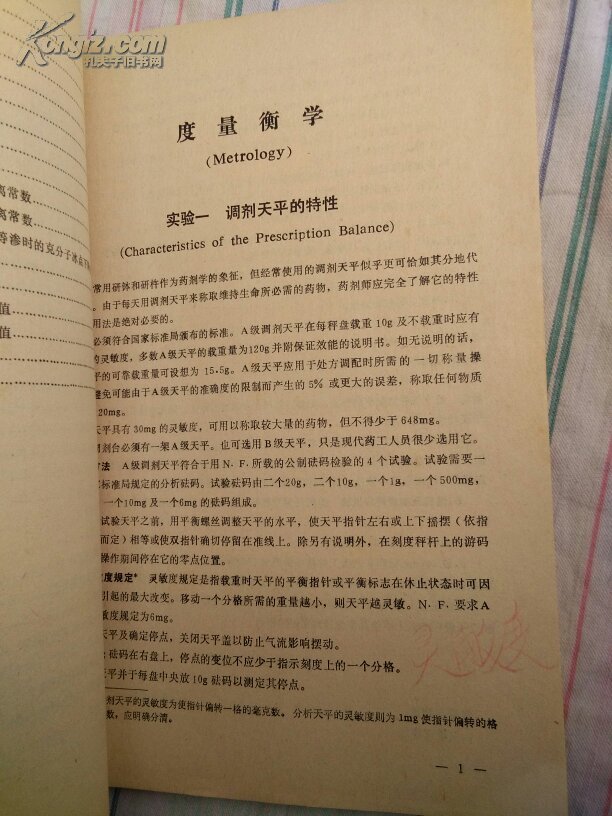 Kongfz.com
孔夫子旧书网
离常数
离常数
等渗时的克分子冰点
值
值
度量衡学
(Metrology)
实验一 调剂天平的特性
(Characteristics of the Prescription Balance)
常用研钵和研杵作为药剂学的象征，但经常使用的调剂天平似乎更可恰如其分地代
。由于每天用调剂天平来称取维持生命所必需的药物，药剂师应完全了解它的特性
用法是绝对必要的。
必须符合国家标准局颁布的标准。A级调剂天平在每秤盘载重10g及不载重时应有
的灵敏度，多数A级天平的载重量为120g并附保证效能的说明书。如无说明的话，
平的可靠载重量可设想为15.5g。A级天平应用于处方调配时所需的一切称量操
避免可能由于A级天平的准确度的限制而产生的5%或更大的误差，称取任何物质
20mg。
天平具有30mg的灵敏度，可用以称取较大量的药物，但不得少于648mg。
调剂台必须有一架A级天平。也可选用B级天平，只是现代药工人员很少选用它。
方法 A级调剂天平符合于用N.F.所载的公制砝码检验的4个试验。试验需要一
标准局规定的分析砝码。试验砝码由二个20g，二个10g，一个1g，一个500mg，
一个10mg及一个6mg的砝码组成。
试验天平之前，用平衡螺丝调整天平的水平，使天平指针左右或上下摇摆（依指
而定）相等或使双指针确切停留在准线上。除另有说明外，在刻度秤杆上的游码
操作期间停在它的零点位置。
敏度规定* 灵敏度规定是指载重时天平的平衡指针或平衡标志在休止状态时可因
引起的最大改变。移动一个分格所需的重量越小，则天平越灵敏。N.F.要求A
敏度规定为6mg。
天平及确定停点，关闭天平盖以防止气流影响摆动。
砝码在右盘上，停点的变位不应少于指示刻度上的一个分格。
天平并于每盘中央放10g砝码以测定其停点。
剂天平的灵敏度为使指针偏转一格的毫克数。分析天平的灵敏度则为1mg使指针偏转的格
数，应明确分清。
— 1 —